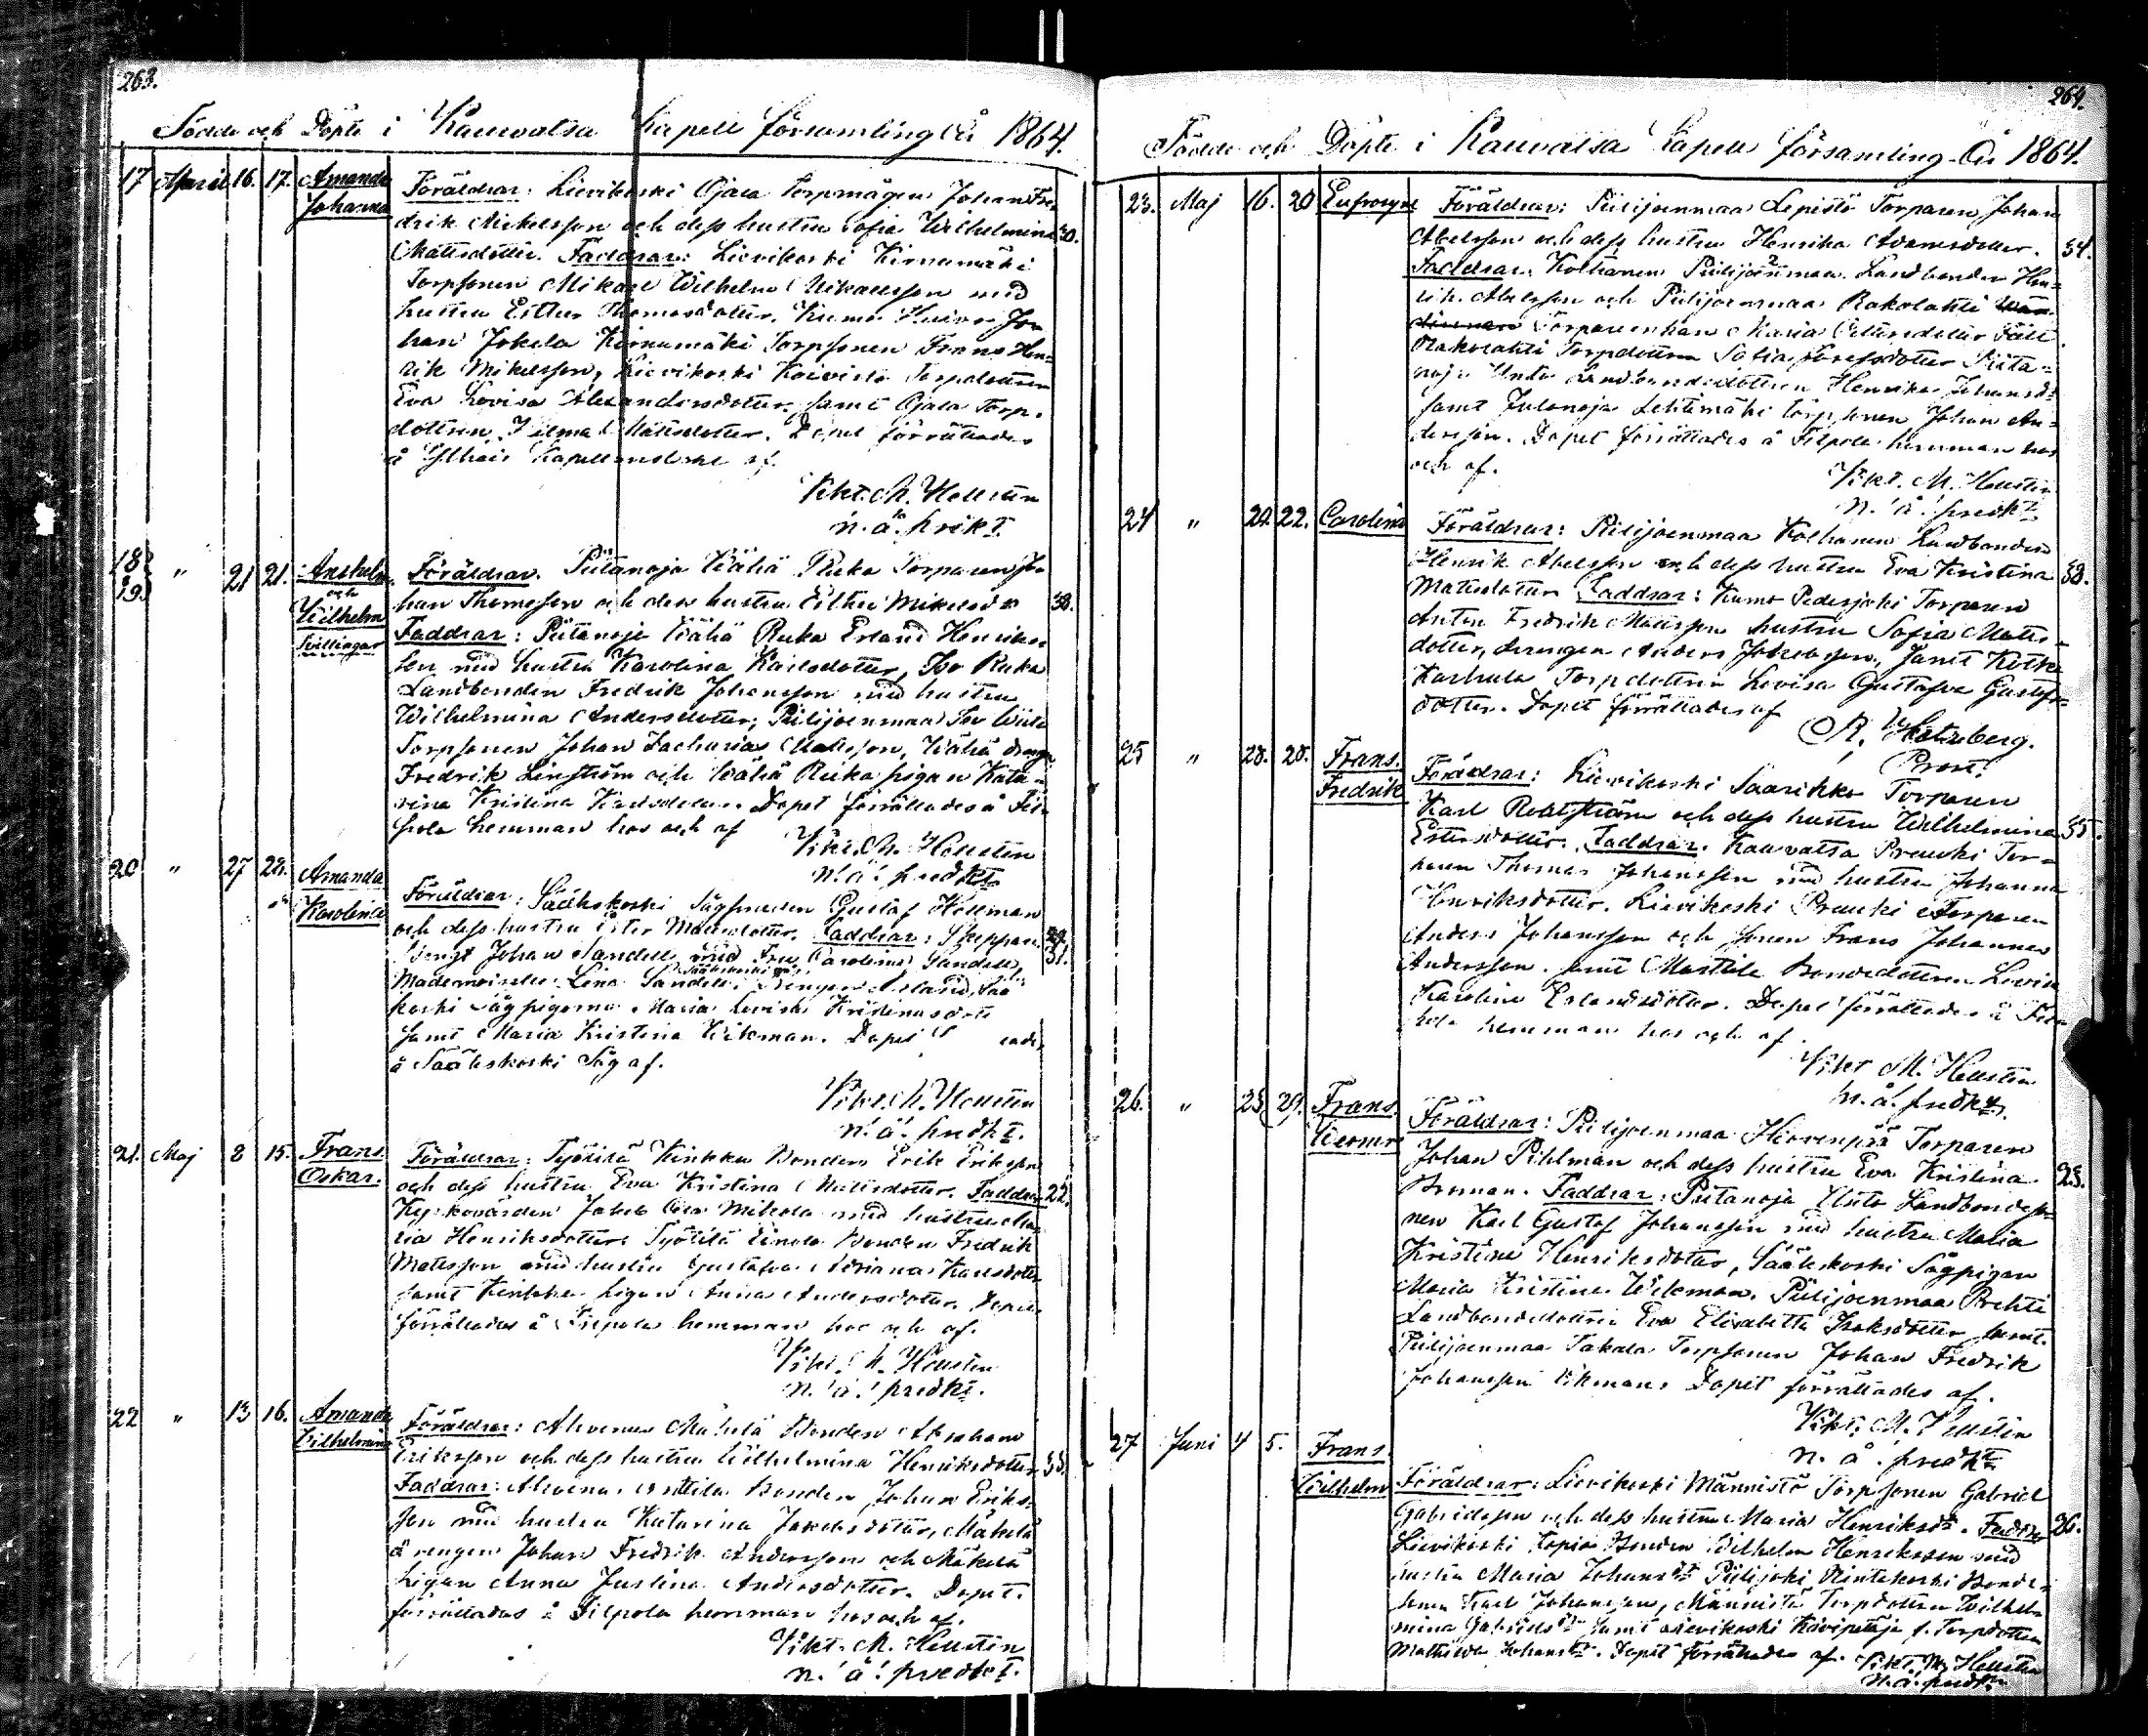 263.
Födde och Döpte i Kauvatsa Kapell församling År 1864.
17 April 16. 17. Amanda Johanna
Föräldrar: Lievikoski Ojala Torpmågen Johan Fre-
drik Mikelsson och dess hustru Sofia Wilhelmina 30.
Mattsdotter. Faddrar: Lievikoski Kirnumäki
Torpsonen Mikael Wilhelm Mikaelsson med
hustru Esther Thomasdotter, Kumo
han Jokela Kirnumäki Torpsonen Frans Hen-
rik Mikelsson, Lievikoski Koivisto Torpdottren
Eva Lovisa Alexandersdotter, samt Ojala Torp-
dottren Wilma Mattsdotter. Dopet förrättades
å Kapellansbole af
Vikt. M. Hellstén
n. å. predkt.
18 19 " 21 21. Anshelm och Wilhelm Tvillingar
Föräldrar. Piitanoja Wähä Ruka Torparen Jo-
han Thomasson och dess hustru Esther Mikelsdr 38.
Faddrar: Piitanoja Wähä Ruka Erland Henriks-
son med hustru Karolina Karlsdotter, Iso Ruka
Landbonden Fredrik Johansson med hustru
Wilhelmina Andersdotter, Piilijoenmaa
Torpsonen Johan Zacharias Mattsson, Wähä dreng
Fredrik Linström och Wähä Ruka pigan Kata-
rina Kristina Karlsdotter. Dopet förrättades å Fil-
pola hemman hos och af
Vikt. M. Hellstén
n. å. predkt.
20 " 27 28. Amanda Karolina
Föräldrar: Sääkskoski Sågsmeden Gustaf Hellman
och dess hustru Ester Mattsdotter. Faddrar: Skeppare
Bengt Johan Sandell med Fru Carolina Sandell,
Mademoiselle Lina Sandell,
koski Sågpigorna Maria Lovisa Kristinasdotter
samt Maria Kristina Wikman. Dopet
å Sääkskoski Såg af.
Vikt. M. Hellstén
n. å. predkt.
21. Maj 8 15. Frans Oskar.
Föräldrar: Työtilä Kinkka Bonden Erik Eriksson
och dess hustru Eva Kristina Mattsdotter. Faddrar 22.
Kyrkovärden Mikola med hustru Ma-
ria Henriksdotter, Työtilä Bonden Fredrik
Mattsson med hustru Gustafva Adriana Karlsdotter
samt Kinkka pigan Anna Andersdotter. Dopet
förrättades å Filpola hemman hos och af.
Vikt. M. Hellstén
n. å. predkt.
22 " 13 16. Amanda Wilhelmina
Föräldrar: Ahvenus Mäkelä Bonden Abraham
Eriksson och dess hustru Wilhelmina Henriksdotter
Faddrar: Ahvenus Anttila Bonden Johan Eriks-
son med hustru Katarina Jakobsdotter, Mäkelä
drengen Johan Fredrik Andersson och Mäkelä
pigan Anna Justina Andersdotter. Dopet
förrättades å Filpola hemman hos och af.
Vikt. M. Hellstén
n. å. predkt.
264.
Födde och Döpte i Kauvatsa Kapell församling År 1864.
23. Maj 16. 20 Eufrosyne
Föräldrar: Piilijoenmaa Lepistö Torparen Johan
Abelsson och dess hustru Henrika Adamsdotter. 34.
Faddrar: Kolhanen Piilijoenmaa Landbonden Hen-
rik Abelsson och Piilijoenmaa Rakolahti
Torparenkan Maria
Rakolahti Torpdottren Sofia Josefsdotter Piita-
noja Unto Landbondedottren Henrika Johansdr
samt Julanoja Lehtimäki torpsonen Johan An-
dersson. Dopet förrättades å Filpola hemman hos
och af.
Vikt. M. Hellstén
n. å. predkt.
24 " 20. 22. Carolina
Föräldrar: Piilijoenmaa Kolhanen Landbonden
Henrik Abelsson och dess hustru Eva Kristina 38.
Mattsdotter Faddrar: Kumo Pederjoki Torparen
Anton Fredrik Mattsson hustru Sofia Matts-
dotter, drengen Anders Jakobsson, samt
Karhula Torpdottren Lovisa Gustafva Gustafs-
dotter. Dopet förrättades af
Prost.
25 " 28. 28. Frans Fredrik
Föräldrar: Lievikoski Saarikko Torparen
Karl och dess hustru Wilhelmina 35.
Estersdotter. Faddrar. Kauvatsa Prauki Tor-
paren Thomas Johansson med hustru Johanna
Henriksdotter. Lievikoski Prauki Torparen
Anders Johansson och sonen Frans Johannes
Andersson. samt Marttila Bondedottren Lovisa
Karolina Erlandsdotter. Dopet förrättades å Fil-
pola hemman hos och af
Vikt M. Hellstén
n. å. predkt.
26. " 25 29. Frans Werner
Föräldrar: Piilijoenmaa Hirvenpää Torparen
Johan Pihlman och dess hustru Eva Kristina 23.
Broman. Faddrar: Piitanoja Unto Landbondeso-
nen Karl Gustaf Johansson med hustru Maria
Kristina Henriksdotter, Sääkskoski Sågpigan
Maria Kristina Wikman. Piilijoenmaa Prehti
Landbondedottren Eva Elisabetta Isaksdotter samt
Piilijoenmaa Takala Torpsonen Johan Fredrik
Johansson Vikman. Dopet förrättades af.
Vikt. M. Hellstén
n. å. predkt.
27 Juni 4 5. Frans Wilhelm
Föräldrar: Lievikoski Männistö Torpsonen Gabriel
Gabrielsson och dess hustru Maria Henriksdr. Faddrar 26.
Lievikoski Bonden Wilhelm Henriksson med
hustru Maria Johansdr Piilijoki Rintakoski Bonde-
sonen Karl Johansson, Männistö Torpdottren Wilhel-
mina Gabrielsdr samt Lievikoski Torpdottren
Mathilda Johansdr. Dopet förrättades af. Vikt. M. Hellstén
n. å. predkt.